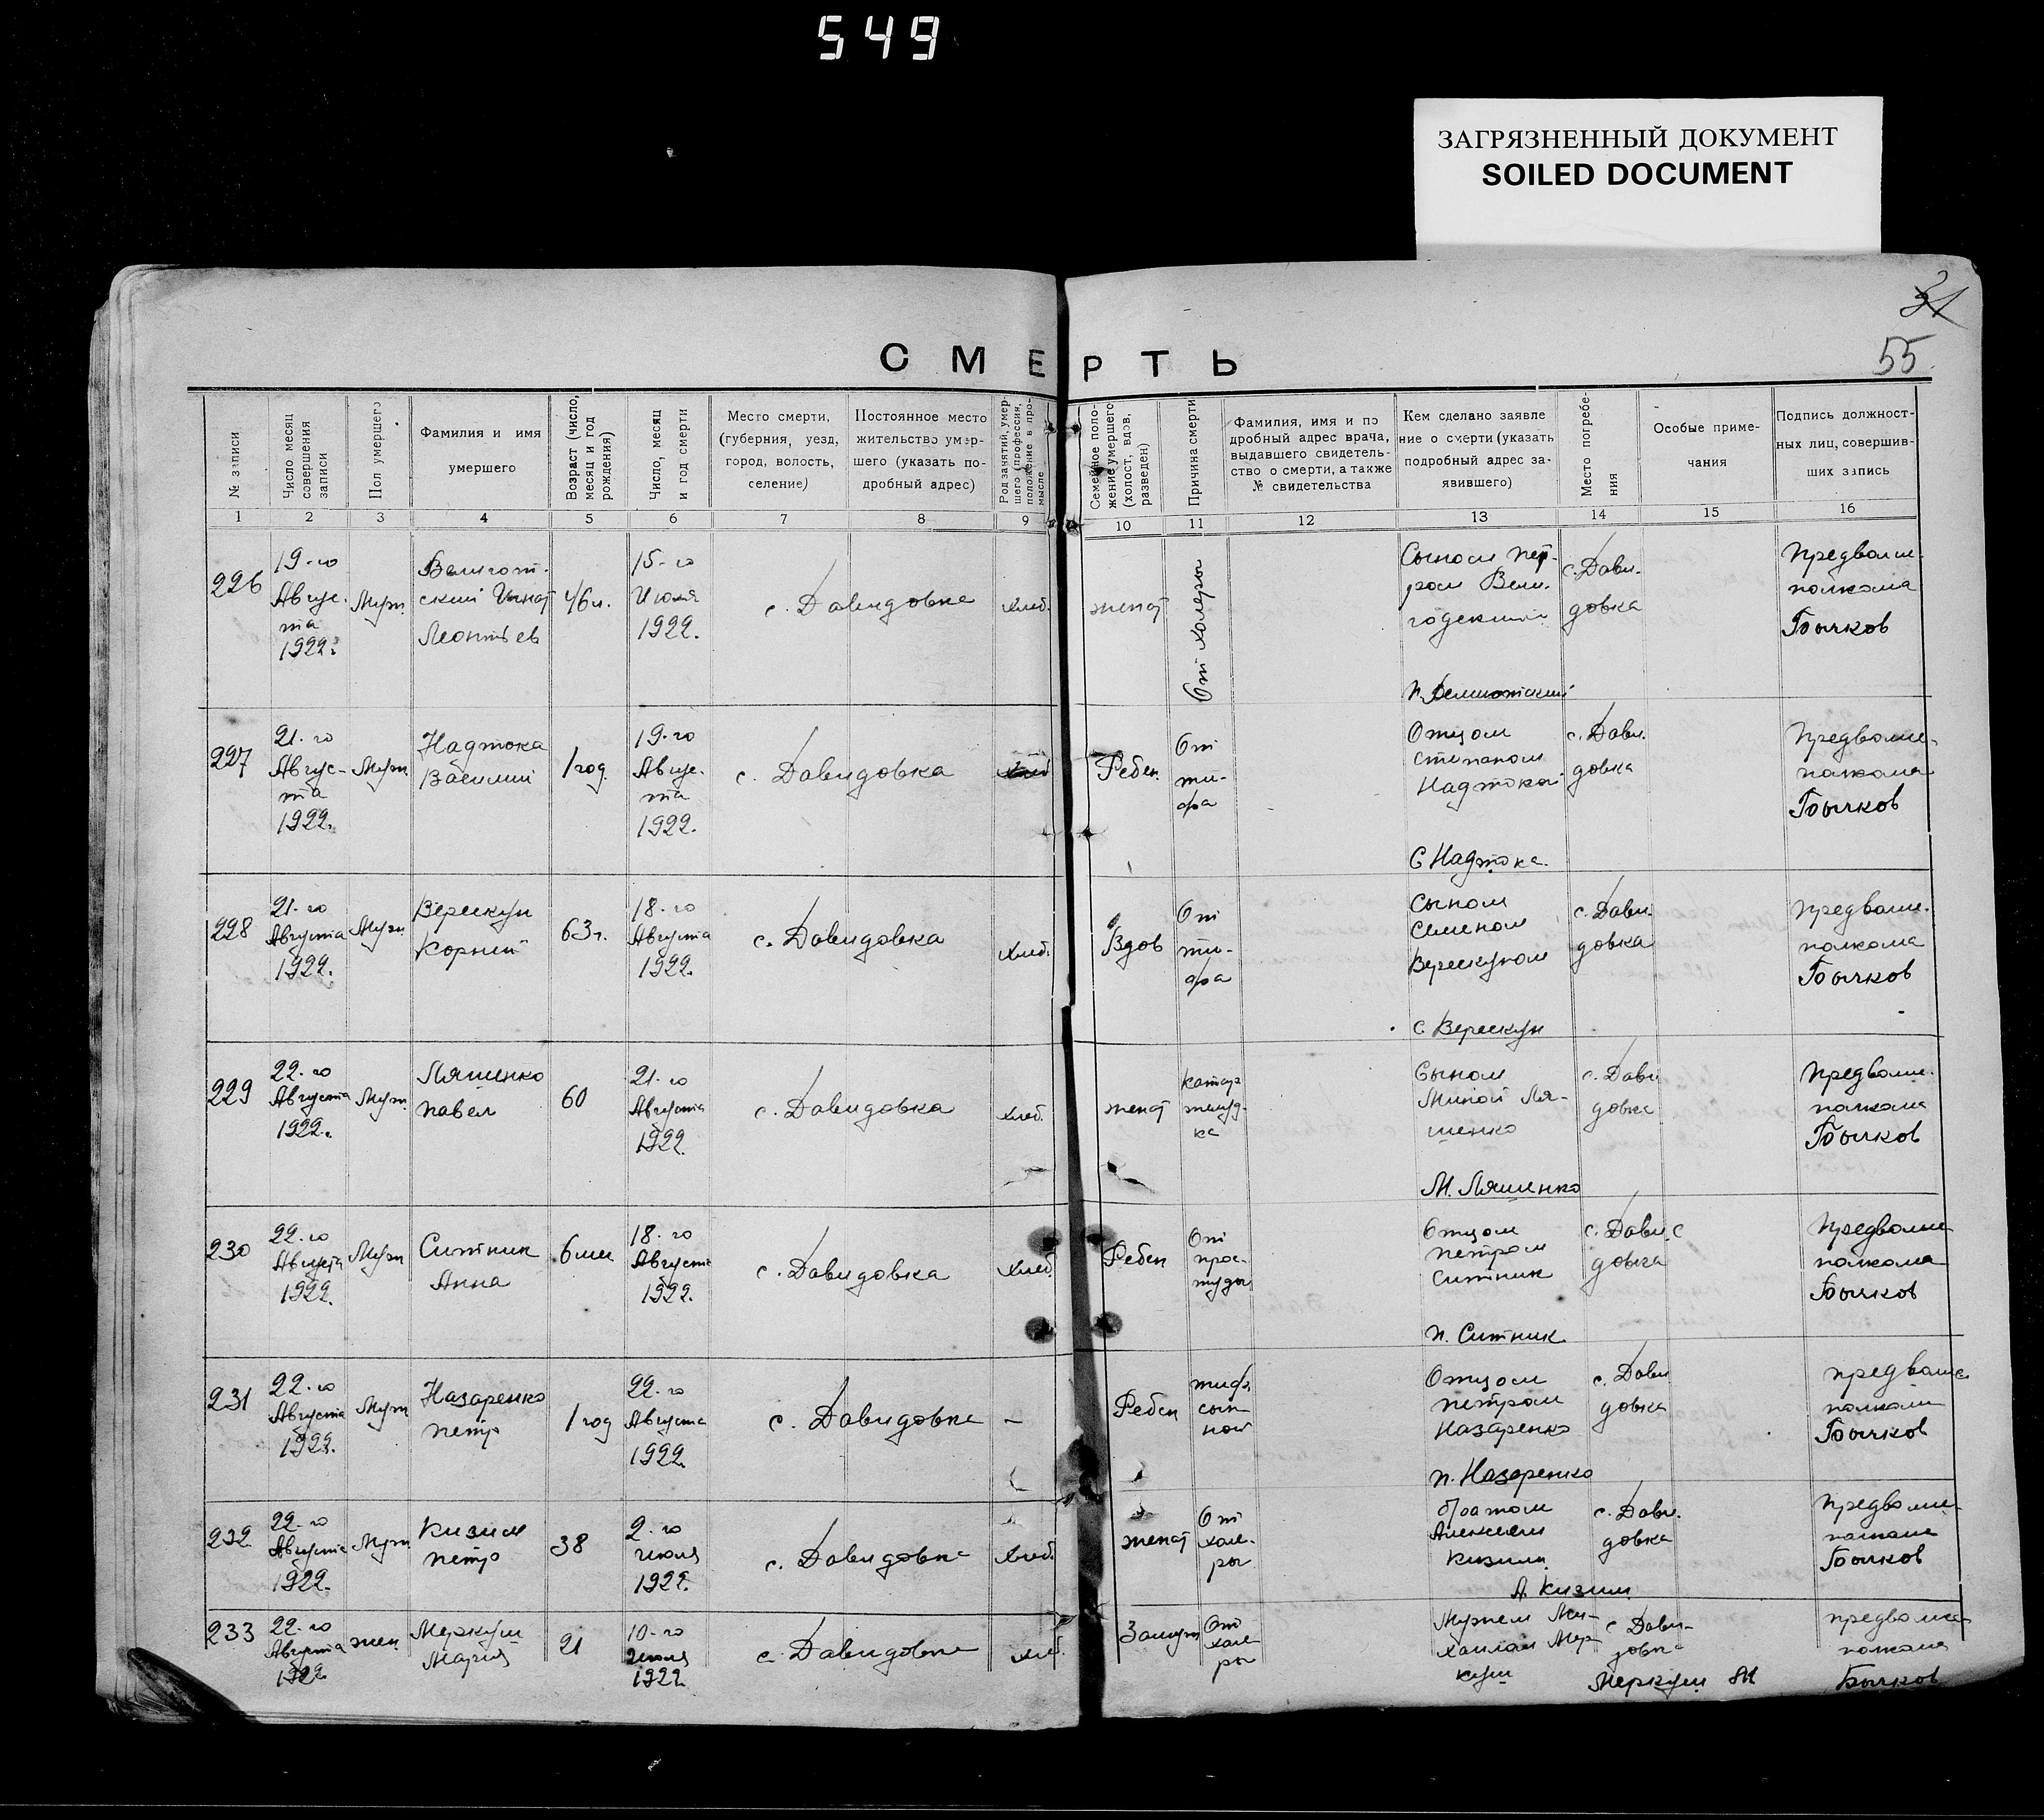 549
ЗАГРЯЗНЕННЫЙ ДОКУМЕНТ
SOILED DOCUMENT
31
55
СМЕРТЬ
№ записи
Число месяц
совершения
записи
Пол умершего
Фамилия и имя
умершего
Возраст (число,
месяц и год
рождения)
Число, месяц
и год смерти
Место смерти,
(губерния, уезд,
город, волость,
селение)
Постоянное место
жительство умер-
шего (указать по-
дробный адрес)
Род занятий, умер-
шего (профессия,
положение в про-
мысле
Семейное поло-
жение умершего
(холост, вдов,
разведен)
Причина смерти
Фамилия, имя и по
дробный адрес врача,
выдавшего свидетель-
ство о смерти, а также
№ свидетельства
Кем сделано заявле
ние о смерти (указать
подробный адрес за-
явившего)
Место погребе-
ния
Особые приме-
чания
Подпись должност-
ных лиц, совершив-
ших запись
1 2 3 4 5 6 7 8 9 10 11 12 13 14 15 16
226
19-го
Авгус-
та
1922.
Муж.
ский Игнат
Леонтьев
46л.
15-го
Июля
1922.
с. Давидовка
хлеб.
женат
От холеры
Сыном Пет-
ром
с. Дави-
довка
Предволис-
полкома
Бычков
227
21-го
Авгус-
та
1922.
Муж.
Надтока
Василий
1 год
19-го
Авгус-
та
1922.
с. Давидовка
Ребен.
От
ти-
фа
Отцом
Степаном
Надтокой
С Надтока.
с. Дави-
довка
Предволис-
полкома
Бычков
228
21-го
Августа
1922.
Муж.
Верескун
Корней
63л.
18-го
Августа
1922.
с. Давидовка
хлеб.
Вдов
От
ти-
фа
Сыном
Семеном
Верескуном
С Верескун
с. Дави-
довка
Предволис-
полкома
Бычков
229
22-го
Августа
1922.
Муж.
Ляшенко
Павел
60
21-го
Августа
1922
с. Давидовка
хлеб.
женат
катар
желуд-
ка
Сыном
Миной Ля-
шенко
М. Ляшенко
с. Дави
довка
Предволис-
полкома
Бычков
230
22-го
Августа
1922.
Муж
Ситник
Анна
6 ме
18-го
Августа
1922.
с. Давидовка
хлеб.
Ребен
От
прос-
туды
Отцом
Петром
Ситник
П. Ситник.
с. Дави
довка
Предволис
полкома
Бычков
231
22-го
Августа
1922.
Муж
Назаренко
Петр
1 год
22-го
Августа
1922.
с. Давидовка
—
Ребен
тиф
сып-
ной
Отцом
Петром
Назаренко
П. Назаренко
с. Дави
довка
предволис
полкома
Бычков
232
22-го
Августа
1922.
Муж
Кизим
Петр
38
2-го
июля
1922.
с. Давидовка
хлеб.
женат
От
холе-
ры
братом
Алексеем
Кизим
А. Кизим
с. Дави-
довка
Предволис-
полкома
Бычков
233
22-го
Августа
1922.
жен.
Меркуш
Мария
21
10-го
июля
1922
с. Давидовка
хлеб.
Замуж
От
холе-
ры
Мужем Ми-
хаилом Мер-
куш
Меркуш М
с Дави-
довка
предволис
полкома
Бычков